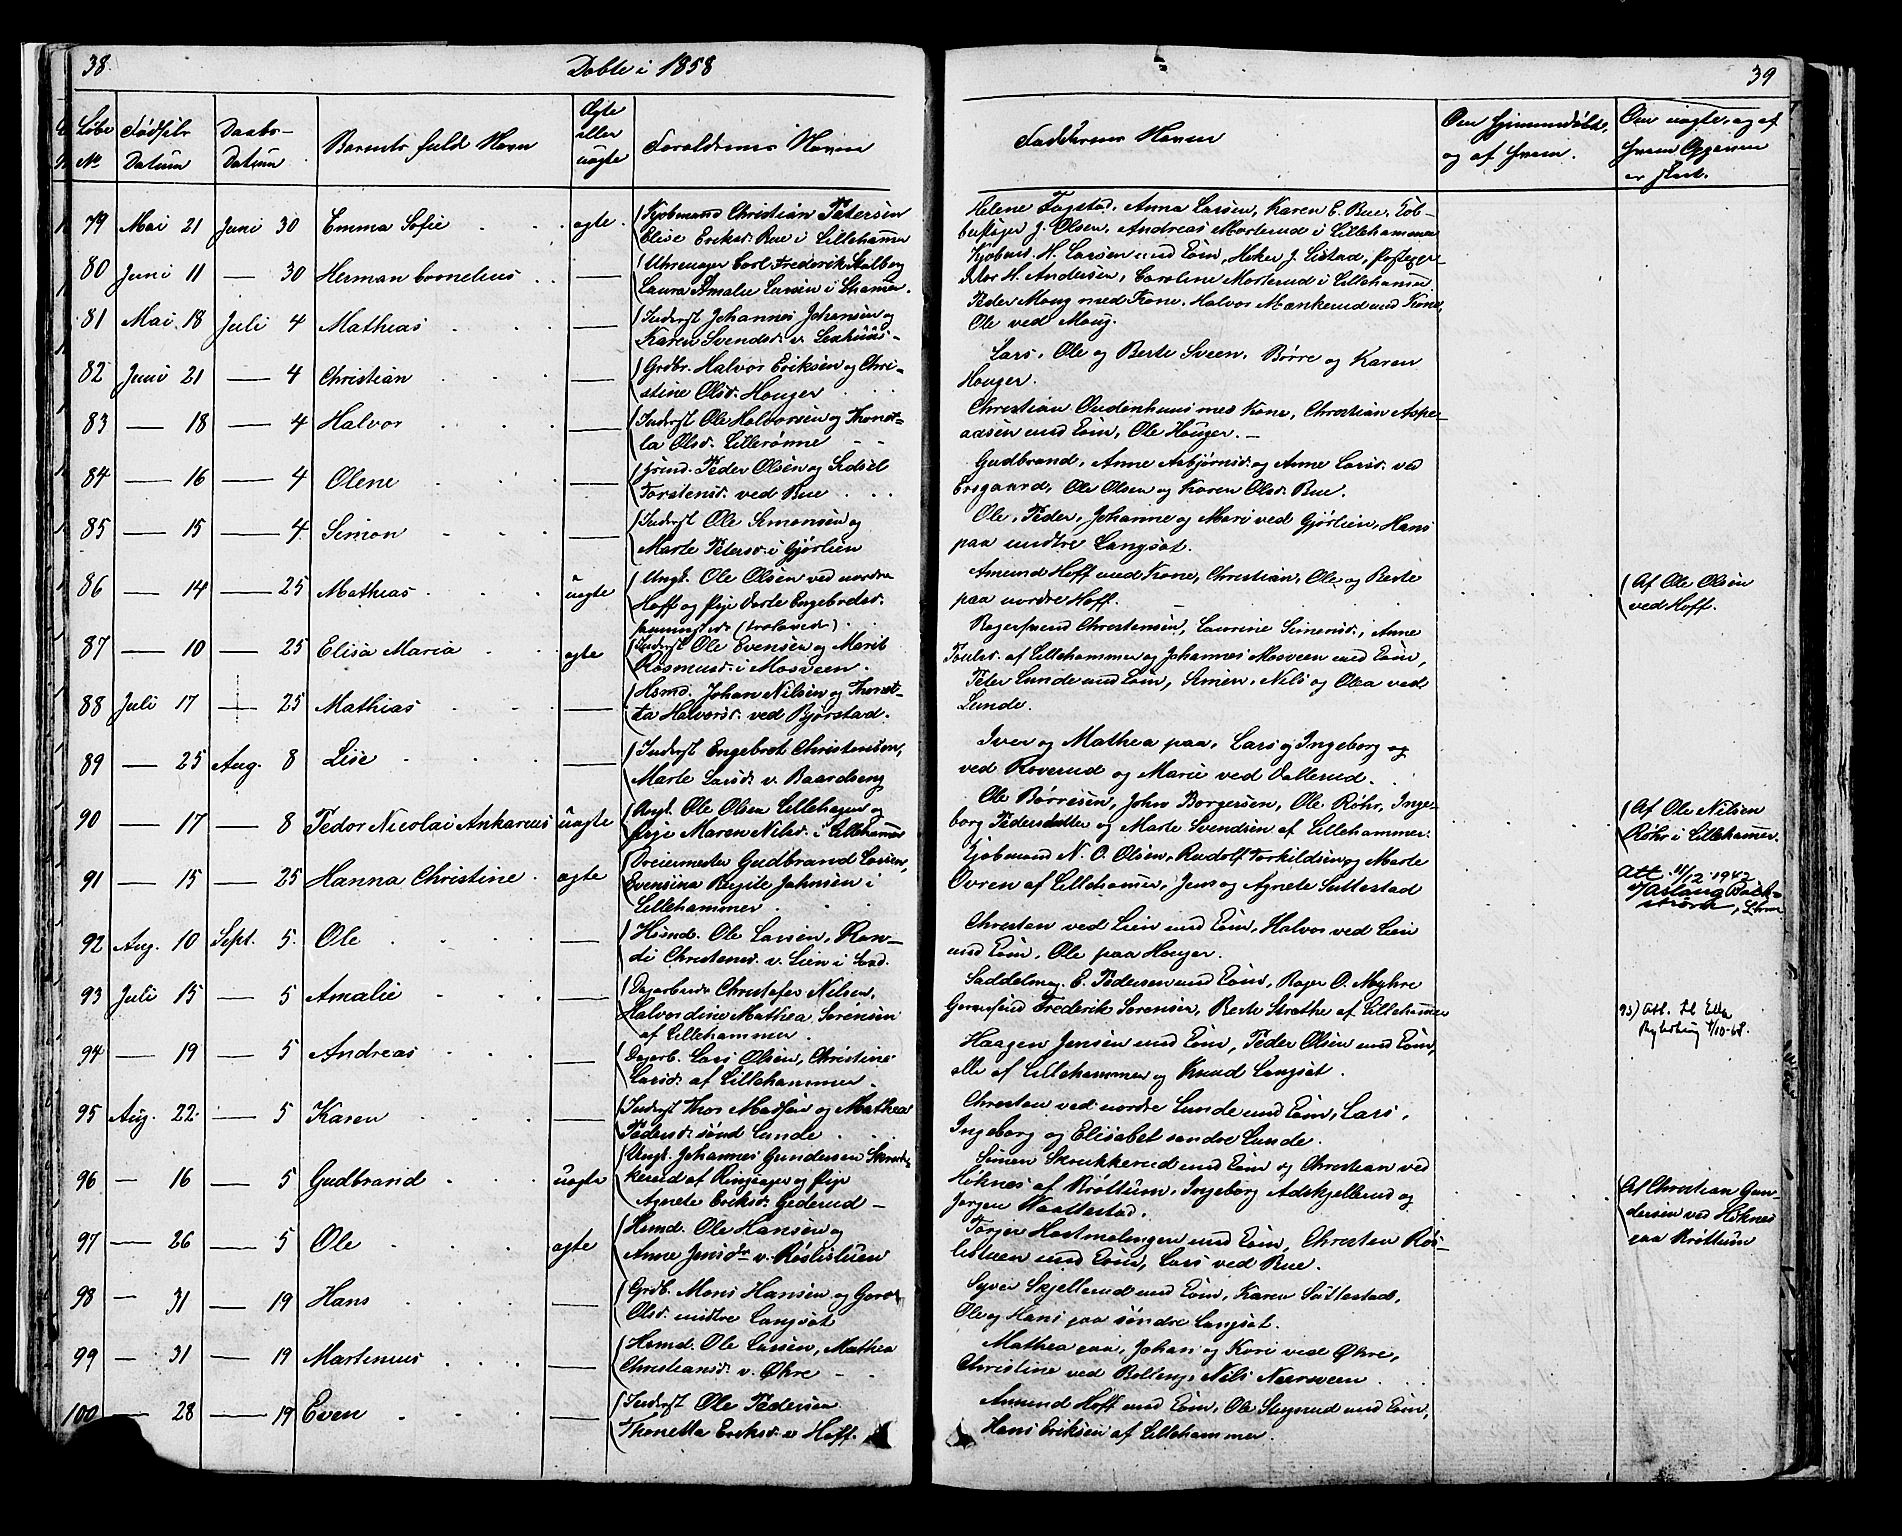 38.
Døbte i 1858
Løbe No
Fødsels Datum
Daabs- Datum
Barnets fuld Navn
Ægte eller uægte
Forældrenes Navne
79 Mai 21 Juni 30 Emma Sofie ægte
Kjøbmand Christian Petersen
Elise Eriksd. Bue i Lillehammer
80 Juni 11 — 30 Herman Cornelius —
Uhrmager Carl Frederik Stalberg
Laura Amalie Larsen i Lhamer.
81 Mai 18 Juli 4 Mathias —
Inderst Johannes Johansen og
Karen Svendsd. v.
82 Juni 21 — 4 Christian —
Grdbr. Halvor Eriksen og Chri-
stine Olsd. Houger
83 — 18 — 4 Halvor —
Inderst Ole Halvorsen og Thonet-
ta Olsd. Lillerønne
84 — 16 — 4 Olene —
Peder Olsen og Sidsel
Torstensd. ved Bue
85 — 15 — 4 Simon —
Inderst Ole Simonsen og
Marte Pedersd. i Gjørlien
86 — 14 — 25 Mathias uægte
Ungk. Ole Olsen ved nordre
Hoff og Pige Dorte Engebretsd.
(trolovede)
87 — 10 — 25 Elisa Maria ægte
Inderst Ole Evensen og Marit
Rasmusd. i Mosveen.
88 Juli 17 — 25 Mathias —
Hsmd. Johan Nilsen og Thonet-
ta Halvorsd. ved Bjørstad.
89 — 25 Aug. 8 Lise —
Inderst Engebret Christensen,
Marte Larsd. v. Baardseng
90 — 17 — 8 Pedor Nicolai Ankareus uægte
Ungk. Ole Olsen Lillehagen og
Pige Maren Nilsd. i Lillehammer
91 — 15 — 25 Hanna Christine ægte
Dreiermester Gudbrand Larsen,
Evensina Birgite Jahnsen i
Lillehammer
92 Aug. 10 Sept. 5 Ole —
Husmd. Ole Larsen, Ran-
di Christensd. v. Lien i
93 Juli 15 — 5 Amalie —
Dagarbeider Christofer Nilsen,
Halvordine Mathea Sørensen
af Lillehammer.
94 — 19 — 5 Andreas —
Dagarb. Lars Olsen, Christine
Larsd. af Lillehammer.
95 Aug. 22 — 5 Karen —
Inderst Thor Madsen og Mathea
Pedersd. sønd Lunde
96 — 16 — 5 Gudbrand uægte
Ungk. Johannes Gundersen Skruk-
kerud af Ringsager og Pige
Agnete Eriksd. Gederud —
97 — 26 — 5 Ole ægte
Hsmd. Ole Hansen og
Anne Jensdr v. Røslistuen
98 — 31 — 19 Hans —
Grdb. Mons Hansen og Goro
Olsd. midtre Langsæt
99 — 31 — 19 Martinus —
Hsmd. Ole Larsen, Mathea
Christiansd. v. Øhre
100 — 28 — 19 Even —
Inderst Ole Pedersen
Thonetta Eriksd. v. Hoff.
39
Faddernes Navne
Om hjemmedøbt, og af hvem.
Om uægte, og af hvem Opgaven er skeet.
Helene Fagstad, Anna Larsen, Karen E. Bue,
J. Olsen, Andreas Morterud i Lillehammer
Kjøbmd. H. Larsen med Kone, J. Listad,
H. Andersen, Caroline Morterud i Lillehamer
Peder Moug med Kone, Halvor Mænkerud med Kone,
Ole ved Moug.
Lars, Ole og Berte Sveen, Børre og Karen
Houger.
Christian Oudenhuus med Kone, Christian Aspe-
aasen med Kone, Ole Houger. —
Gudbrand, Anne Asbjørnsd. og Anne Larsd. ved
Ole Olsen og Karen Olsd. Bue.
Ole, Peder, Johanne og Mari ved Gjørlien, Hans
paa midtre Langsæt.
Amund Hoff med Kone, Christian, Ole og Berte
paa nordre Hoff.
Christensen, Laurine Simensd., Anne
Poulsd. af Lillehammer og Johannes Mosveen med Kone,
Peter Lunde med Kone, Simen, Nils og Olea ved
Lunde.
Iver og Mathea paa, Lars og Ingeborg
ved Roverud og Marie ved Vallerud.
Ole Børresen, John Borgersen, Ole Røhr, Inge-
borg Pedersdatter og Marte Svendsen af Lillehammer.
Kjøbmand N. O. Olsen, Rudolf Torkildsen og Marte
Ovren af Lillehamer, Jens og Agnete Suttestad
Christen ved Lien med Kone, Halvor ved Lien
med Kone, Ole paa Houger.
Saddelmag. E. Pedersen med Kone, Bager O. Myhre
Frederik Sørensen, Berte Strøthe af Lillehammer
Haagen Jensen med Kone, Peder Olsen med Kone,
alle af Lillehammer og Knud Langsæt.
Christen ved nordre Lunde med Kone, Lars,
Ingeborg og Elisabet søndre Lunde.
Simen Skrukkerud med Kone og Christian ved
Høknes af Brøttum, Ingeborg Adskjellerud og
Jørgen Vaattestad.
Torger Hostmælingen med Kone, Christen Røs-
listuen med Kone, Lars ved Bue.
Syver Skjellerud med Kone, Karen Suttestad,
Ole og Hans paa søndre Langsæt.
Mathea paa, Johan og Kari ved Øhre,
Christine ved Nils Nersveen
Amund Hoff med Kone, Ole med Kone,
Hans Eriksen af Lillehammer.
Af Ole Olsen
ved Hoff.
Af Ole Nilsen
Røhr i Lillehammer.
Att. 4/12 1942
v/Aslaug Bakk-
93) Att. til Ella
4/10-68.
Af Christian Gun-
dersen ved Høknes
paa Brøttum